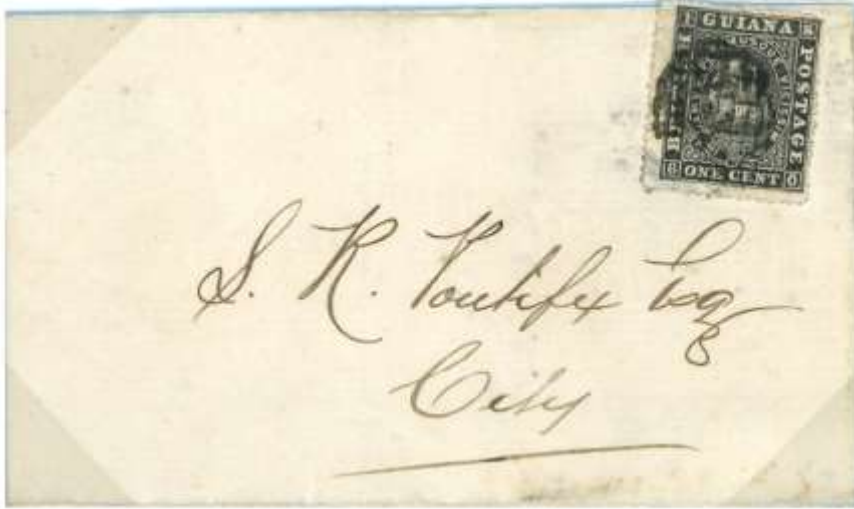 GUIANA
POSTAGE
ONE CENT
S. R. Pontifex Esq
City